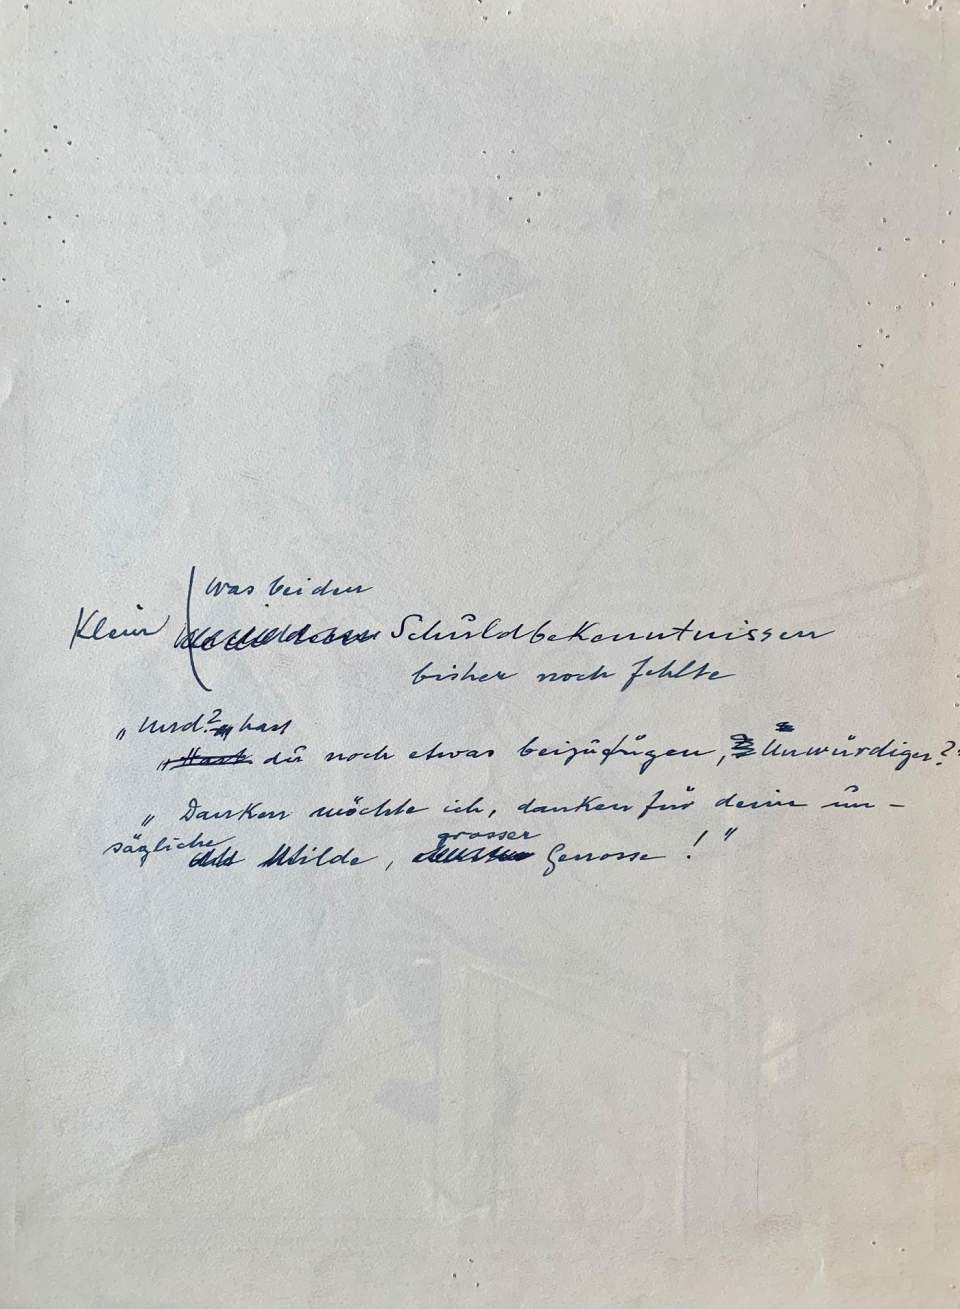 was bei den
Klein Schuldbekenntnissen
bisher noch fehlte
„Und? hast
„Hast du noch etwas beizufügen, Unwürdiger?"
„Danken möchte ich, danken für deine un-
sägliche Milde, grosser Genosse!"